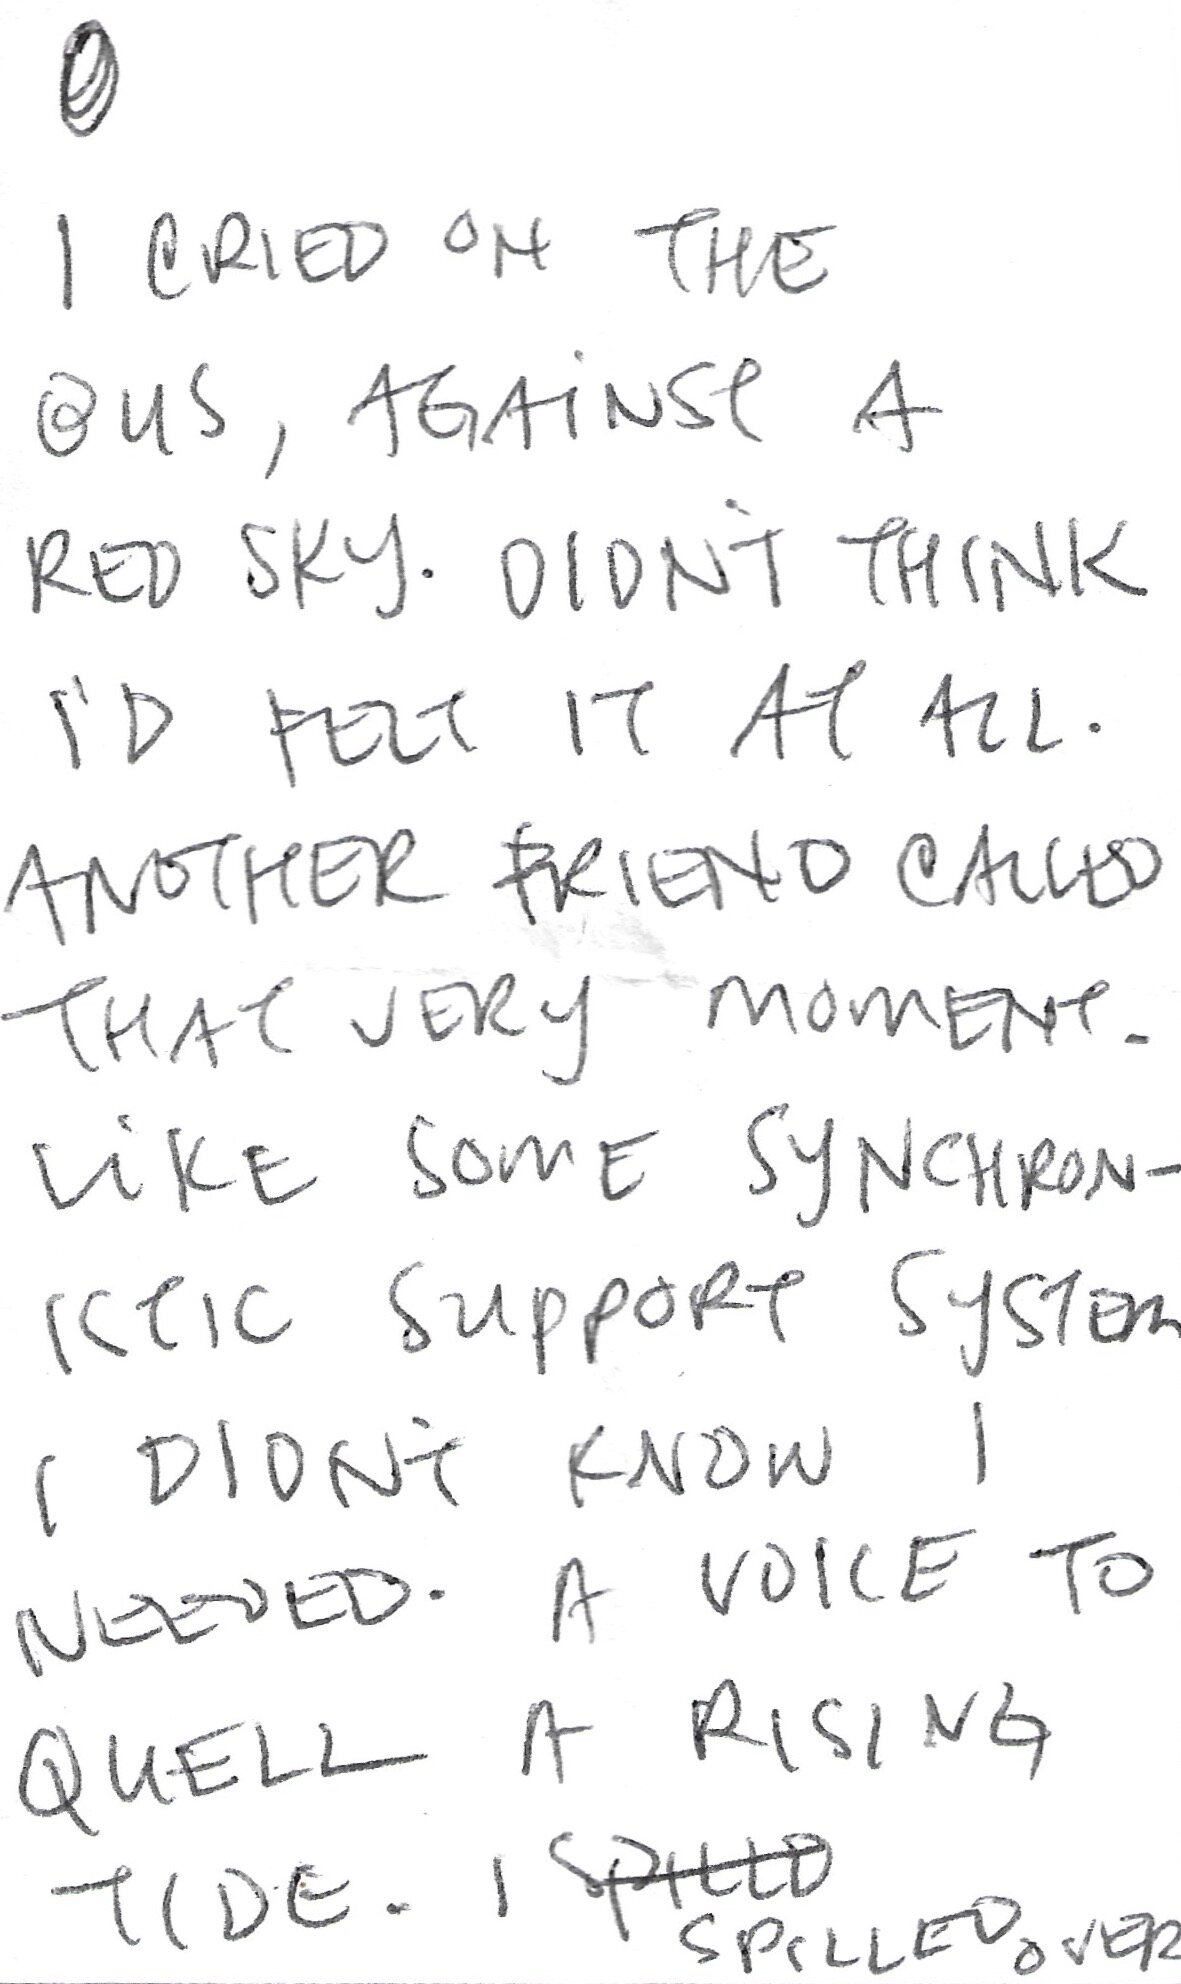 I CRIED ON THE
BUS, AGAINST A
RED SKY. DIDN'T THINK
I'D FELT IT AT ALL.
ANOTHER FRIEND CALLED
THAT VERY MOMENT.
LIKE SOME SYNCHRON-
ISTIC SUPPORT SYSTEM
I DIDN'T KNOW I
NEEDED. A VOICE TO
QUELL A RISING
TIDE. I SPILLD
SPILLED OVER